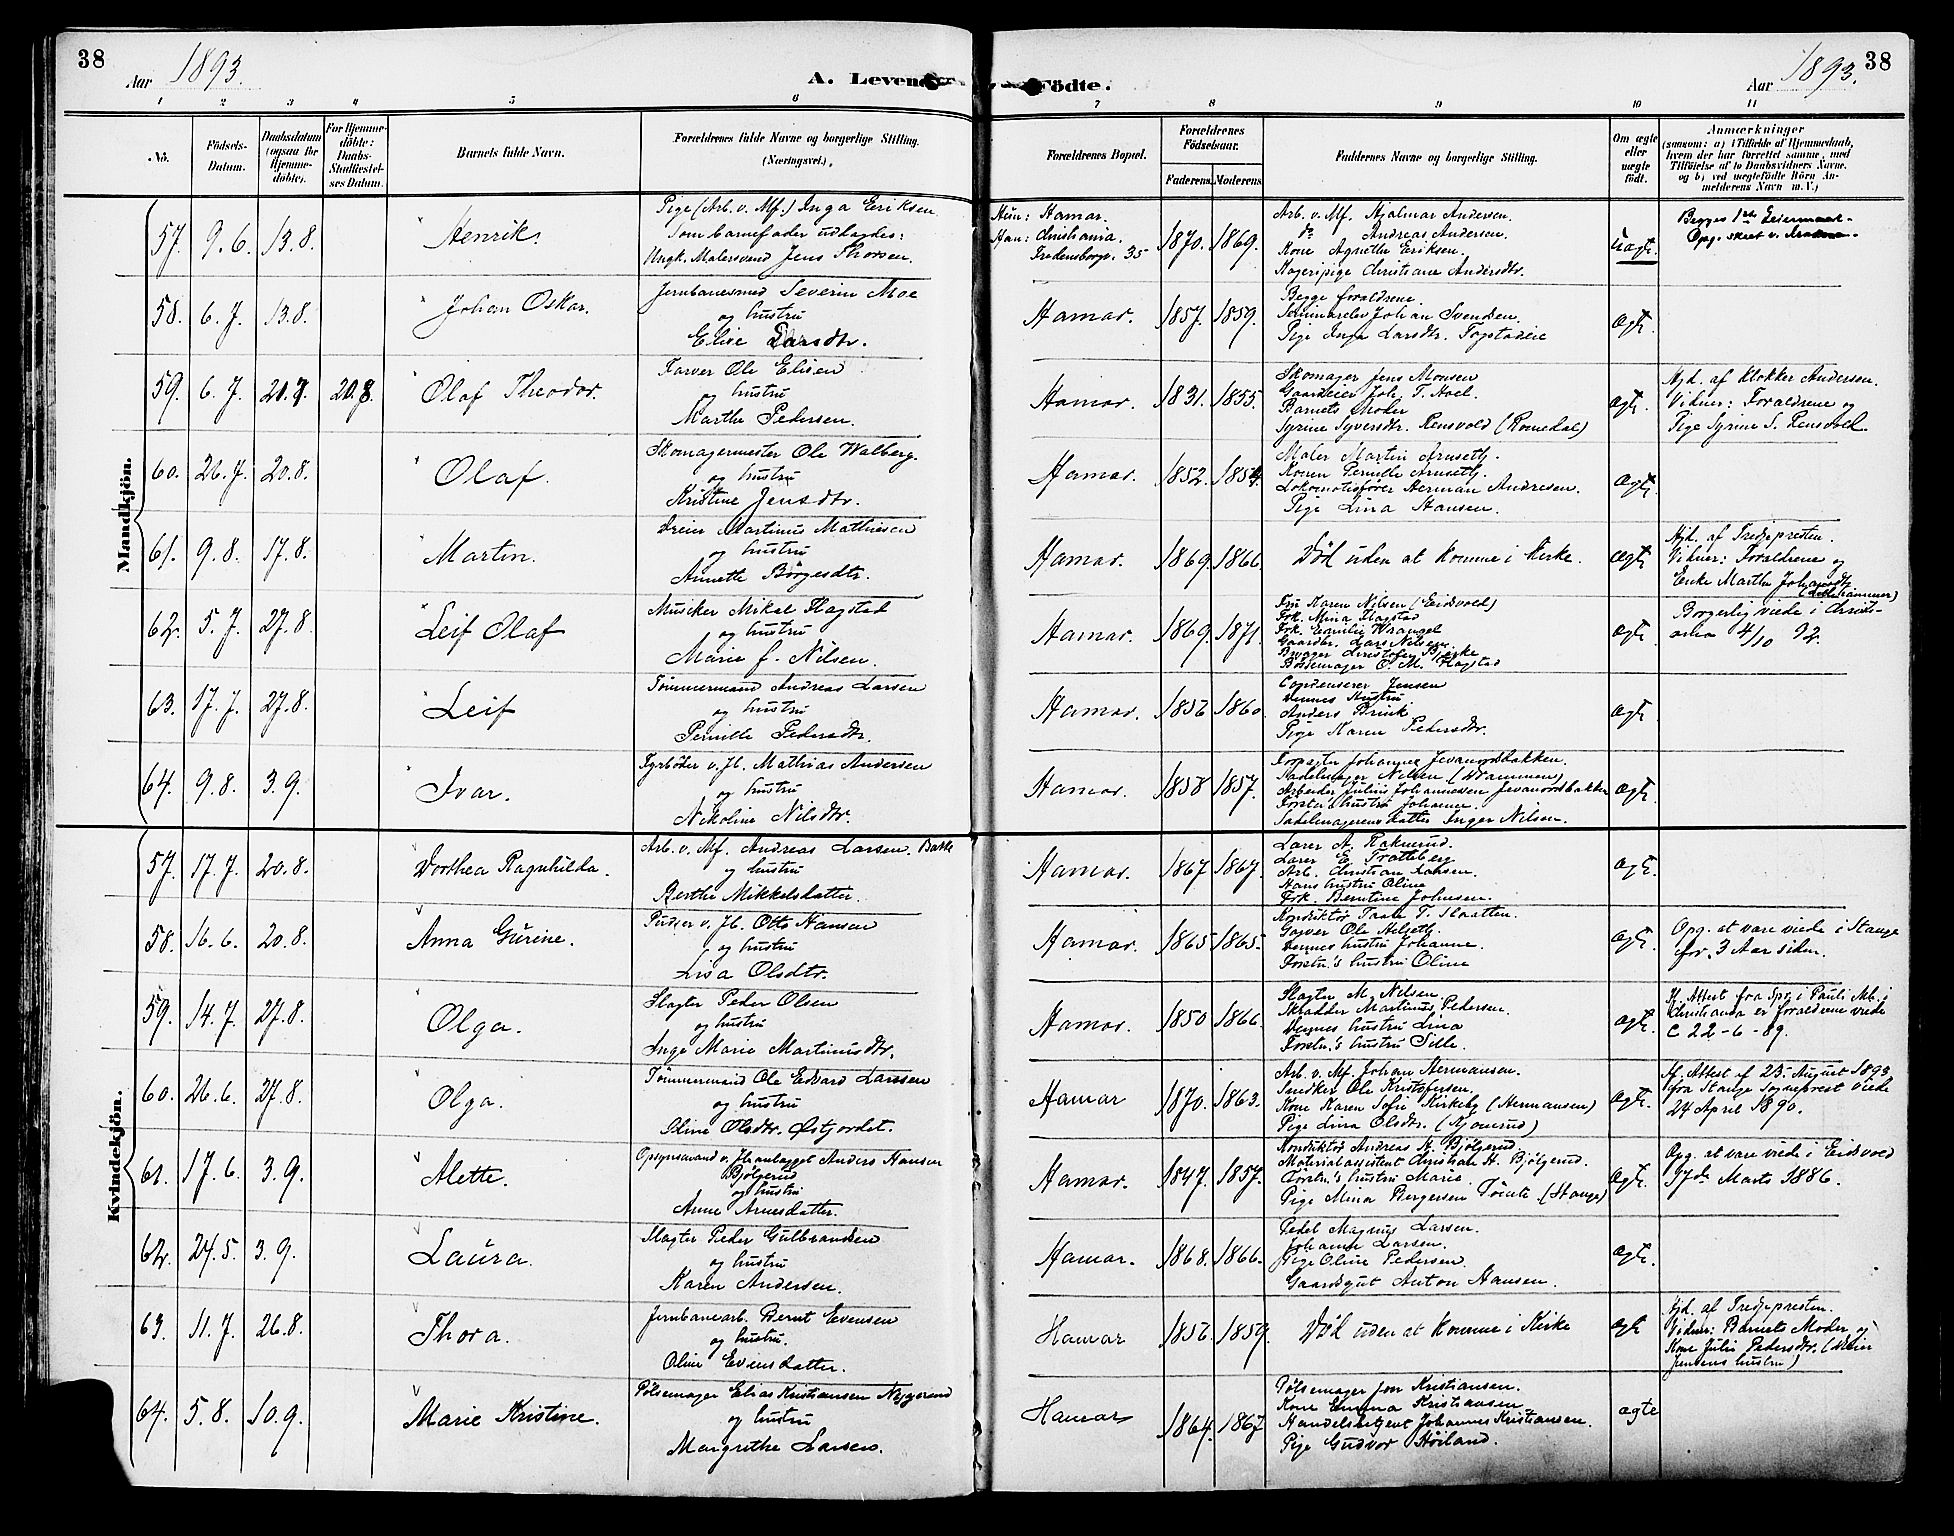 38
Aar 1893.
A. Levende Födte.
Aar 1893.
38
1 2 3 4 5 6 7 8 9 10 11
No.
Födsels-Datum.
Daabsdatum (ogsaa for Hjemmedöbte).
For Hjemmedöbte: Daabs-Stadfæstelses Datum.
Barnets fulde Navn.
Forældrenes fulde Navne og borgerlige Stilling. (Næringsvei.)
Forældrenes Bopæl.
Forældrenes Födselsaar.
Faderens. Moderens.
Faddernes Navne og borgerlige Stilling.
Om ægte eller uægte födt.
Anmærkninger
(saasom: a) i Tilfælde af Hjemmedaab, hvem der har forrettet samme, med Tilföielse af to Daabsvidners Navne, og b) ved uægtefödte Börn Anmelderens Navn m. V.)
Mandkjön.
57. 9.6. 13.8. Henrik.
Pige (Arb. v. Mf.) Inga Eriksen
Som barnefader udlagdes:
Ungk. Malersvend Jens Thorsen.
Hun: Hamar.
Han: Christiania.
Fredensborgv. 35
1870. 1869.
Arb. v. Mf. Hjalmar Andersen.
do Andreas Andersen.
Kone Agnethe Eriksen.
Kogeripige Christiane Andersdtr.
Uægte.
Begges 1ste Leiermaal.
58. 6.7. 13.8. Johan Oskar.
Jernbanesmed Severin Moe
og hustru
Elise Larsdtr.
Hamar. 1857. 1859.
Begge forældrene.
Seminarelev Johan Svendsen
Pige Inga Larsdtr.
ægte.
59. 6.7. 20.7. 20.8. Olaf Theodor.
Farver Ole Elisen
og hustru
Marthe Pedersen.
Hamar. 1831. 1855.
Skomager Jens Monsen
Gaardeier Joh. T. Hoel.
Barnets Moder
Syrine Syversdtr. Rensvold (Romedal)
ægte.
Hjd. af Klokker Andersen.
Vidner: Forældrene og
Pige Syrine S. Rensvold.
60. 26.7. 20.8. Olaf.
Skomagermester Ole Walberg.
og hustru
Kristine Jensdtr.
Hamar. 1852. 1854.
Maler Martin Aruseth.
Konen Pernille Aruseth.
Lokomotivfører Herman Andresen.
Pige Lina Hansen.
ægte.
61. 9.8. 17.8. Martin.
Dreier Martinus Mathiesen
og hustru
Annette Börgesdtr.
Hamar. 1869. 1866.
Död uden at komme i Kirke.
ægte
Hjd. af Tredjepresten.
Vidner: Forældrene og
Enke Marthe Johansdtr
(Lillehammer)
62. 5.7. 27.8. Leif Olaf
Musiker Mikal Flagstad
og hustru
Marie f. Nilsen.
Hamar. 1869. 1871.
Fru Karen Nilsen (Eidsvold)
Frk. Mina Flagstad
Frk. Emilie Wrangel
Gaardbr. Lars Nilsen.
Brygger Christofer Bjerke
Bödkermager O. M. Flagstad
ægte
Borgerlig viede i Christiania 4/10 92.
63. 17.7. 27.8. Leif
Tömmermand Andreas Larsen
og hustru
Pernille Pedersdtr.
Hamar. 1856 1860.
Jensen
Dennes Hustru
Anders Brink
Pige Karen Pedersdtr.
ægte
64. 9.8. 3.9. Ivar.
Fyrböder v. Jb. Mathias Andersen
og hustru
Nikoline Nilsdtr.
Hamar. 1858 1857.
Sadelmager Nilsen (Drammen)
Arbeider Julius Johannessen Jevanordbakken
Förstn's hustru Johanne.
Sadelmagerens datter Inger Nilsen.
ægte.
Kvindekjön.
57. 17.7. 20.8. Dorthea Ragnhilda.
Arb. v. Mf. Andreas Larsen. Bakke
og hustru
Berthe Mikkelsdatter.
Hamar. 1867 1867.
Lærer A. Raknerud.
Lærer E. Tratteberg
Arb. Christian Larsen.
Hans hustru Oline
Frk. Berntine Johnsen.
ægte.
58. 16.6. 20.8. Anna Gurine.
Pudser v. Jb. Otto Hansen
og hustru
Lisa Olsdtr.
Hamar. 1865 1865.
Konduktör Taale T. Slaatten.
Garver Ole Aelseth.
Dennes hustru Johanne.
Förstn.'s hustru Oline
ægte.
Opg. at være viede i Stange
for 3 Aar siden.
59. 14.7. 27.8. Olga.
Slagter Peder Olsen
og hustru
Inge Marie Martinusdtr.
Hamar. 1850 1866.
Slagter M. Nilsen
Skrædder Martinus Pedersen.
Dennes hustru Lina
Förstn.'s hustru Sille.
ægte.
If. Attest fra Spr. i Pauli Mb. i
Christiania er forældrene viede
C 22-6-89.
60. 26.6. 27.8. Olga.
Tömmermand Ole Edvard Larssen
og hustru
Stine Olsdtr. Östjordet.
Hamar 1870. 1863.
Arb. v. Mf. Johan Hermansen.
Snedker Ole Kristofersen.
Kone Karen Sofie Kirkeby (Hermansen)
Pige Lina Olsdtr.
ægte.
If. Attest af 23. August 1893
fra Stange Sogneprest viede
24 April 1890.
61. 17.6. 3.9. Alette.
Opsynsmand v. Jb.anlægget Anders Hansen
Bjölgerud
og hustru
Anne Arnesdatter.
Hamar. 1847. 1857.
Konduktör Andreas H. Bjölgerud
Materialassistent Christian H. Bjölgerud.
Förstn.'s hustru Marie.
Pige Mina Bergersen Tömte (Stange)
ægte.
Opg. at være viede i Eidsvold
17de Marts 1886.
62. 24.5. 3.9. Laura.
Slagter Peder Gulbrandsen
og hustru
Karen Andersen.
Hamar. 1868. 1866.
Pedel Magnus Larsen.
Johanne Larsen.
Pige Oline Pedersen.
Gaardsgut Anton Hansen.
ægte.
63. 11.7. 26.8. Thora.
Jernbanearb. Bernt Evensen
og hustru.
Oline Evensdatter.
Hamar 1856. 1859.
Död uden at komme i Kirke
ægte
Hjd. af Tredjepresten.
Vidner: Barnets Moder og
Kone Julie Pedersdtr.
Jensens hustru)
64. 5.8. 10.9. Marie Kristine.
Pölsemager Elias Kristiansen Nygerud
og hustru
Margrethe Larsen.
Hamar 1864. 1867
Pölsemager Jon Kristiansen.
Kone Emma Kristiansen
Handelsbetjent Johannes Kristiansen.
Pige Gudvor Höiland.
ægte